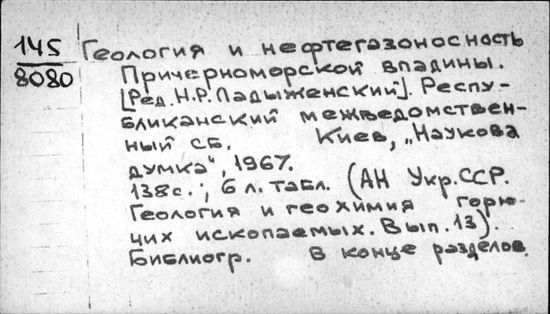 145
8080
Геология и нефтегазоносность
Причерноморской впадины.
[Ред. Н.Р. Ладыженский]. Респу-
бликанский межведомствен-
ный сб. Киев, „Наукова
думка", 1967.
138с.; 6 л. табл. (АН Укр.ССР.
Геология и геохимия горю-
чих ископаемых. Вып. 13).
Библиогр. в конце разделов.